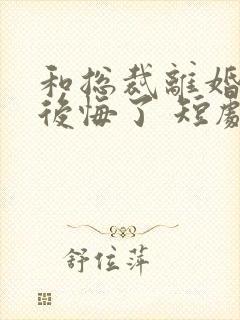 和总裁離婚
後悔了 短劇
舒位萍